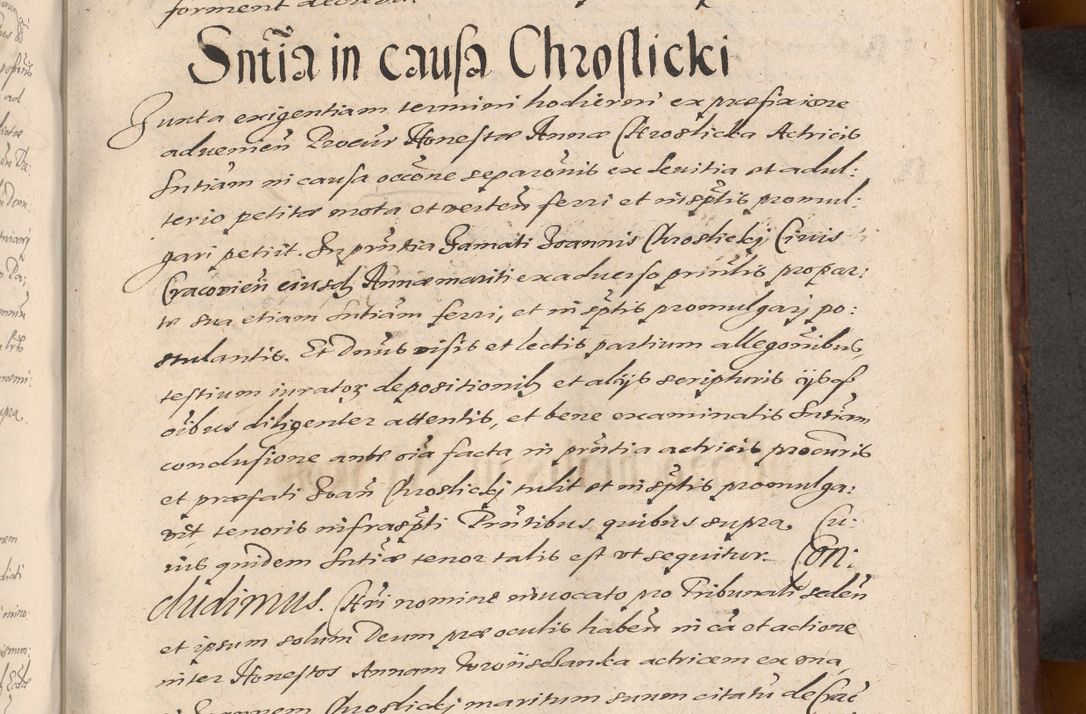 forment decreta.
Snt̃ia in causa Chroslicki
Juxta exigentiam termini hodierni ex præfixione
advenien̄ Procur Honestæ Annæ Chroslicka Actricis
Sntiam in causa occōne separōnis ex levitia et adul:
terio petitæ mota et verten̄ ferri et in sc̄ptis promul:
gari petiit. In pn̄tia Famati Joannis Chroslickj Civis
Cracovien̄ eiusdē Annæ mariti ex adverso prīntis pro par:
te sua etiam Sntiam ferri, et in sc̄ptis promulgarj po:
stulantis. Et Dnūs visis et lectis partium allegōnibus
testium iurator depositionib et alijs scripturis ijsq
oībus diligenter attentis, et bene examinatis Sntiam
conclusione ante oīa facta in prn̄tia actricis procuris
et præfati Joan̄ Chroslickj tulit et in sc̄ptis promulga:
vit tenoris infrasc̄pti Prn̄tibus quibus supra. Cu:
ius quidem Sntiæ tenor talis est ut sequitur. Con:
cludimus. Chrī nomine invocato pro Tribunali seden̄
et ipsum solum Deum præ oculis haben̄ in cā et actione
inter Honestos Annam actricem ex una,
Joannem Chroslickj maritum suum citatū de Crac̄